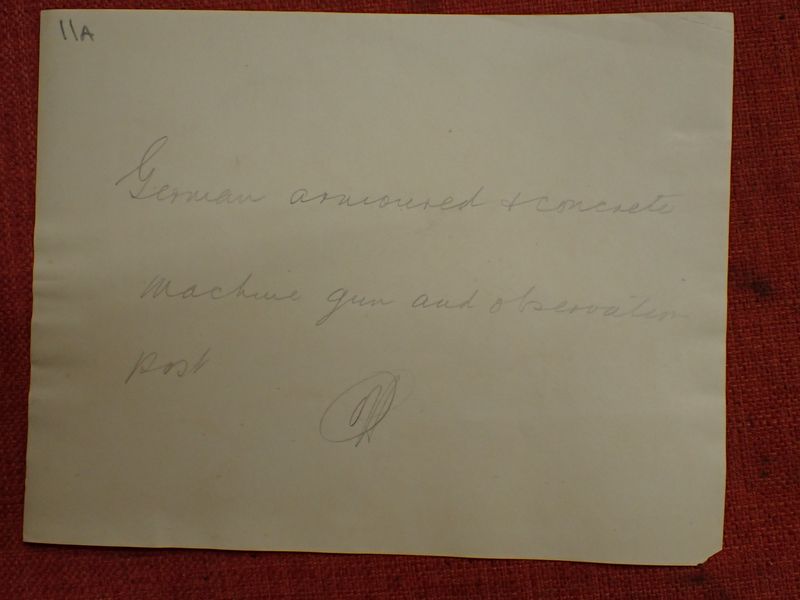 11A
German armoured & concrete
machine gun and observation
post